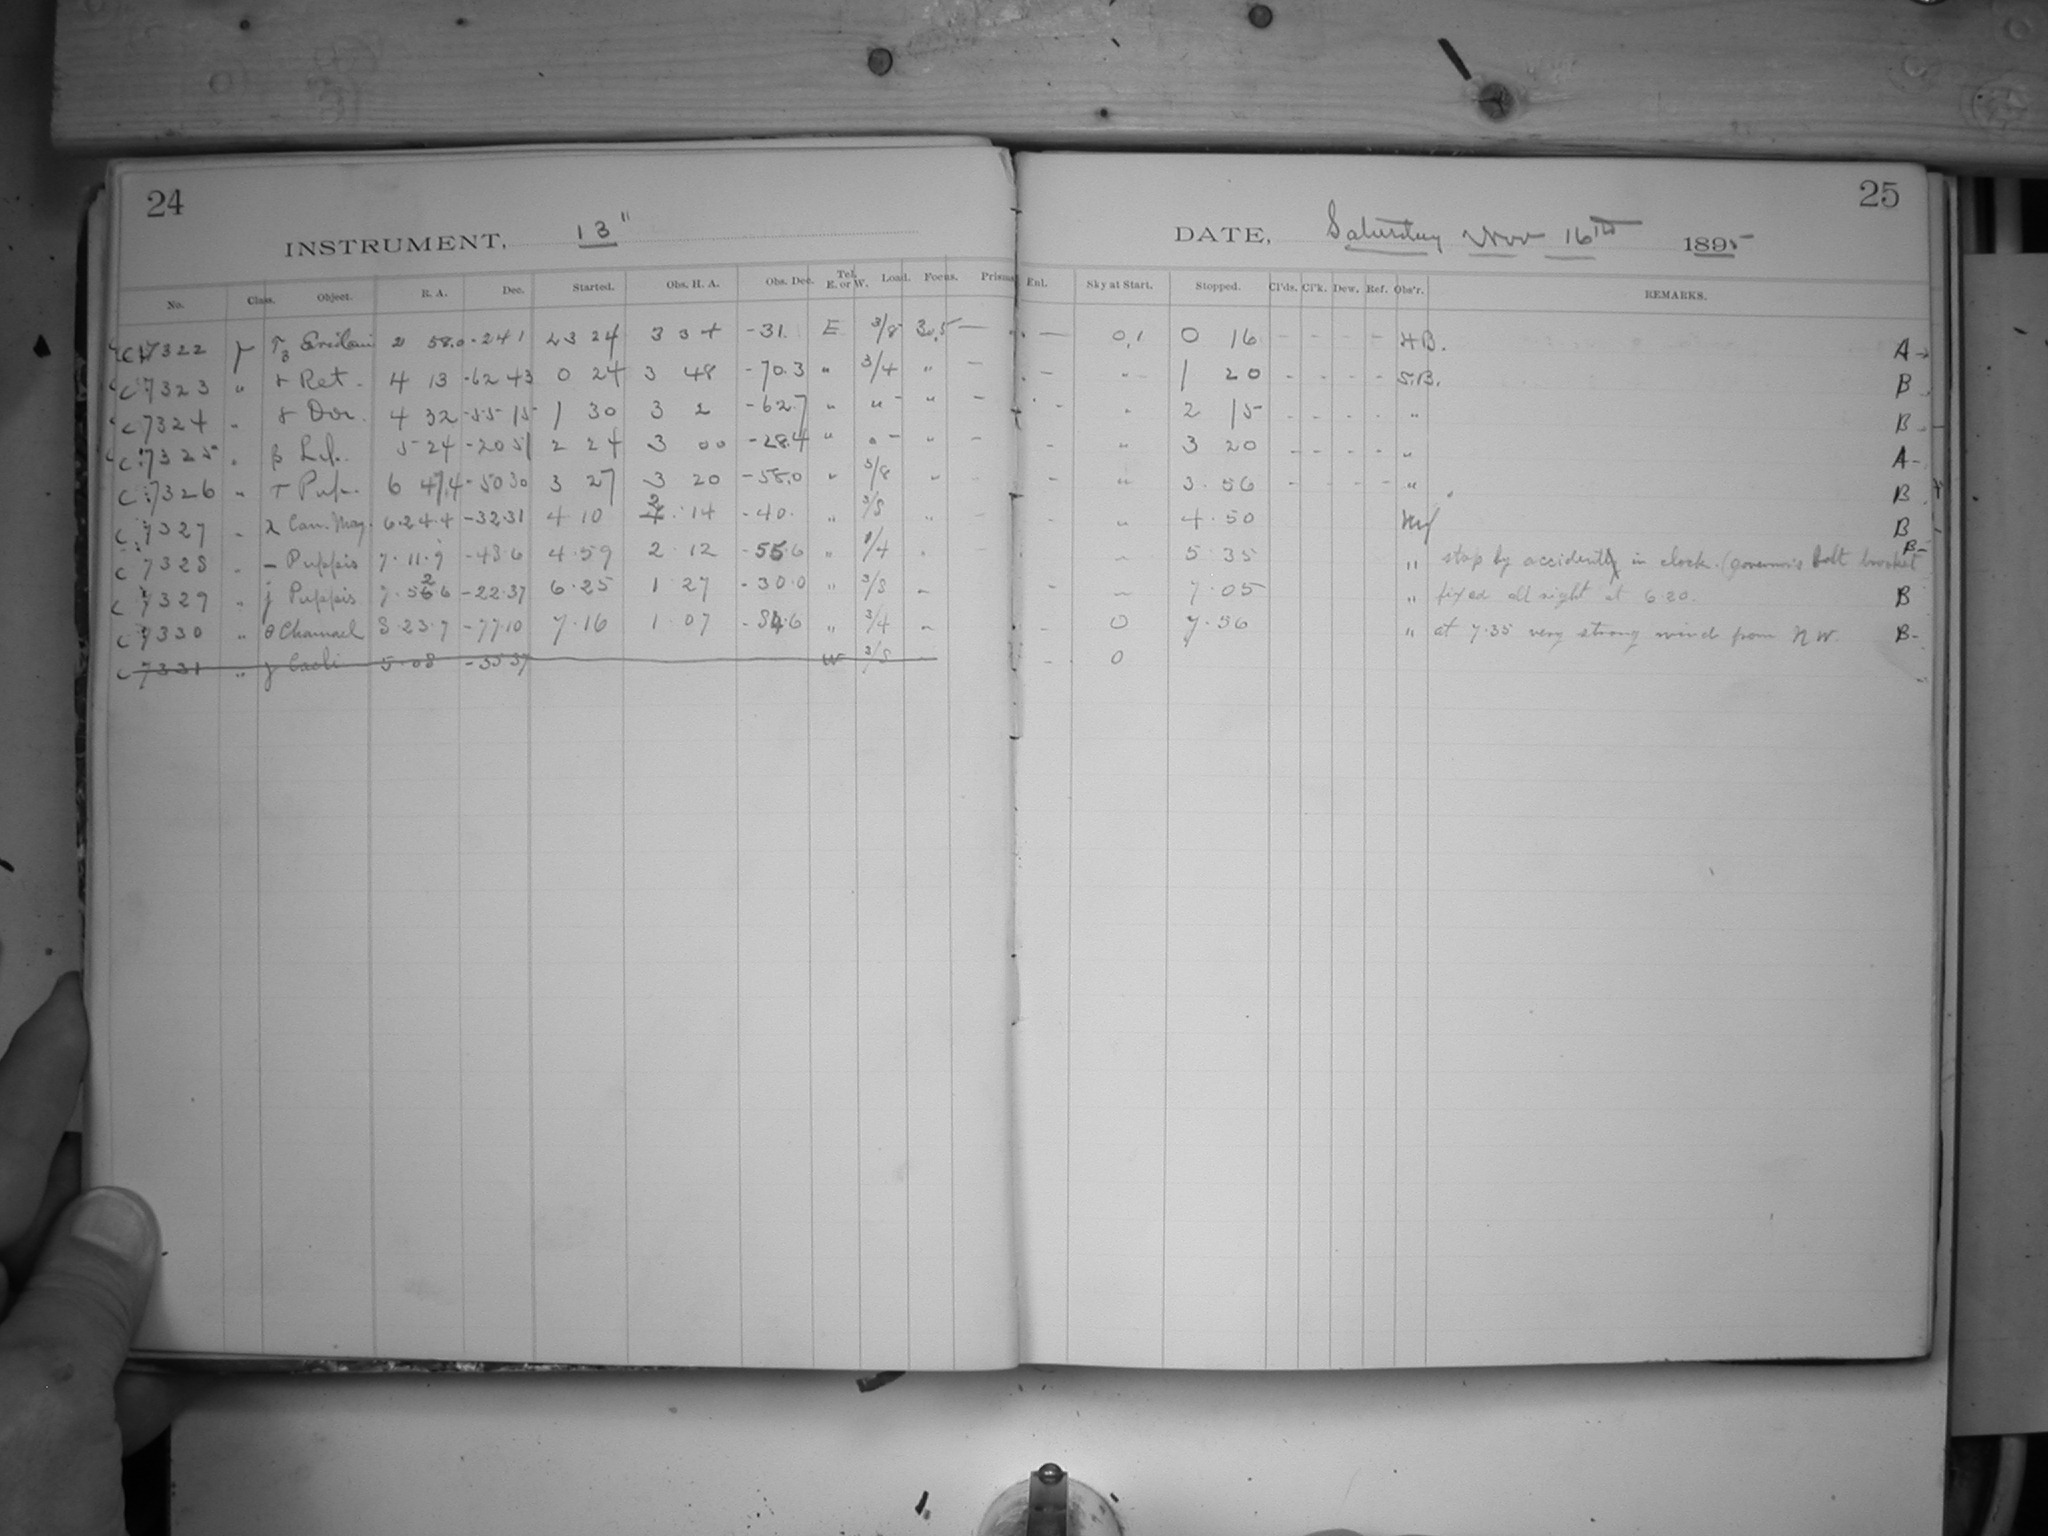 24
INSTRUMENT, 13"
No. Class. Object. R. A. Dec. Started. Obs. H. A. Obs. Dec. Tel. E. or W. Load. Focus. Prisms
C 7322 τ3 Eridani 2 58.0 -24 1 23 24 3 34 -31. E 3/8 30.5 —
C 7323 " Ret. 4 13 -62 43 0 24 3 48 -70.3 " 3/4 " —
C 7324 " Dor. 4 32 -55 15 1 30 3 2 -62.7 " " " -
C 7325 " β Lep. 5 24 -20 51 2 24 3 00 -28.4 " " " -
C 7326 " τ Pup. 6 47.4 -50 30 3 27 3 20 -58.0 " 3/8 " -
C 7327 " λ Can. Maj. 6.24.4 -32.31 4 10 2 14 -40. " 3/8 "
C 7328 " — Puppis 7.11.9 -43.6 4.59 2.12 -55.6 " 1/4 "
C 7329 " j Puppis 7.56 2 6 -22.37 6.25 1 27 -30.0 " 3/8 "
C 7330 " θ Chamael 8.23.7 -77.10 7.16 1.07 -84.6 " 3/4 "
C 7331 " γ Caeli 5.08 -35 37 W 3/8
25
DATE, Saturday Nov 16th 1895
Enl. Sky at Start. Stopped. Cl'ds. Cl'k. Dew. Ref. Obs'r. REMARKS.
— 0,1 0 16 - - - - H.B. A-
- " 1 20 - - - - S.B. B
- " 2 15 - - - - " B
- " 3 20 - - - - " A-
- " 3.56 - - - - " B
- " 4.50 B
" 5.35 " stop by accident in clock. (governor's bolt bracket B-
- " 7.05 " fixed all right at 6.20. B
- 0 7.56 " at 7.35 very strong wind from N W. B-
- 0